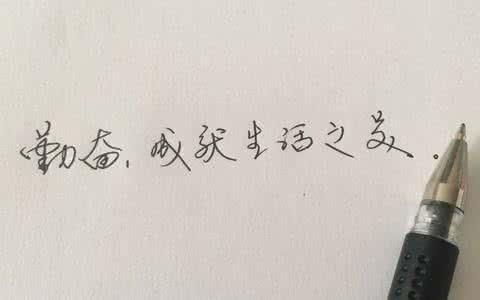 勤奋，成就生活之美。